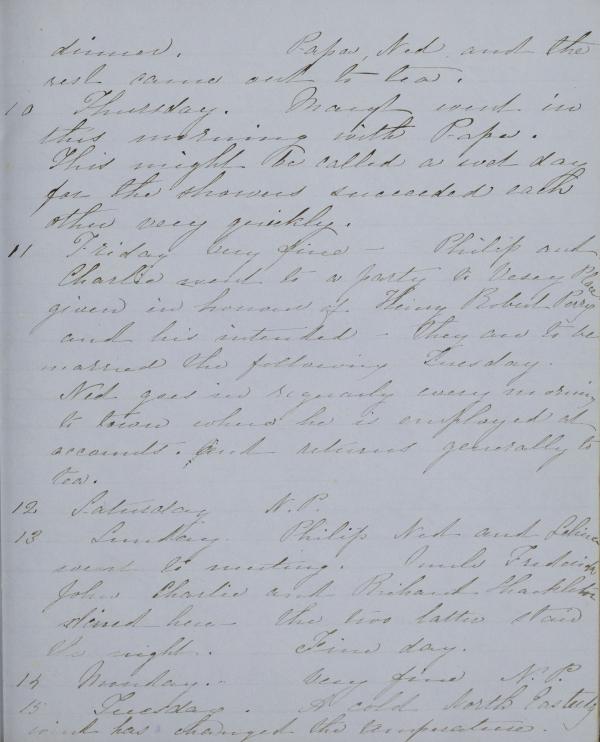 dinner. Papa, Ned and the
rest came out to tea.
10 Thursday. Margt went in
this morning with Papa.
This might be called a wet day
for the showers succeeded each
other very quickly.
11 Friday very fine - Philip and
Charlie went to a party to Vesey Place
given in honour of Henry Robert Perry
and his intended - they are to be
married the following Tuesday.
Ned goes in regularly every morning
to town where he is employed at
accounts. and returns generally to
tea.
12 Saturday N.P.
13 Sunday. Philip Ned and
went to meeting. Uncle Frederick
John Charlie and Richard Shackleton
dined here the two latter staid
the night. Fine day.
14 Monday. Very fine N.P.
15 Tuesday. A cold North Easterly
wind has changed the temperature.